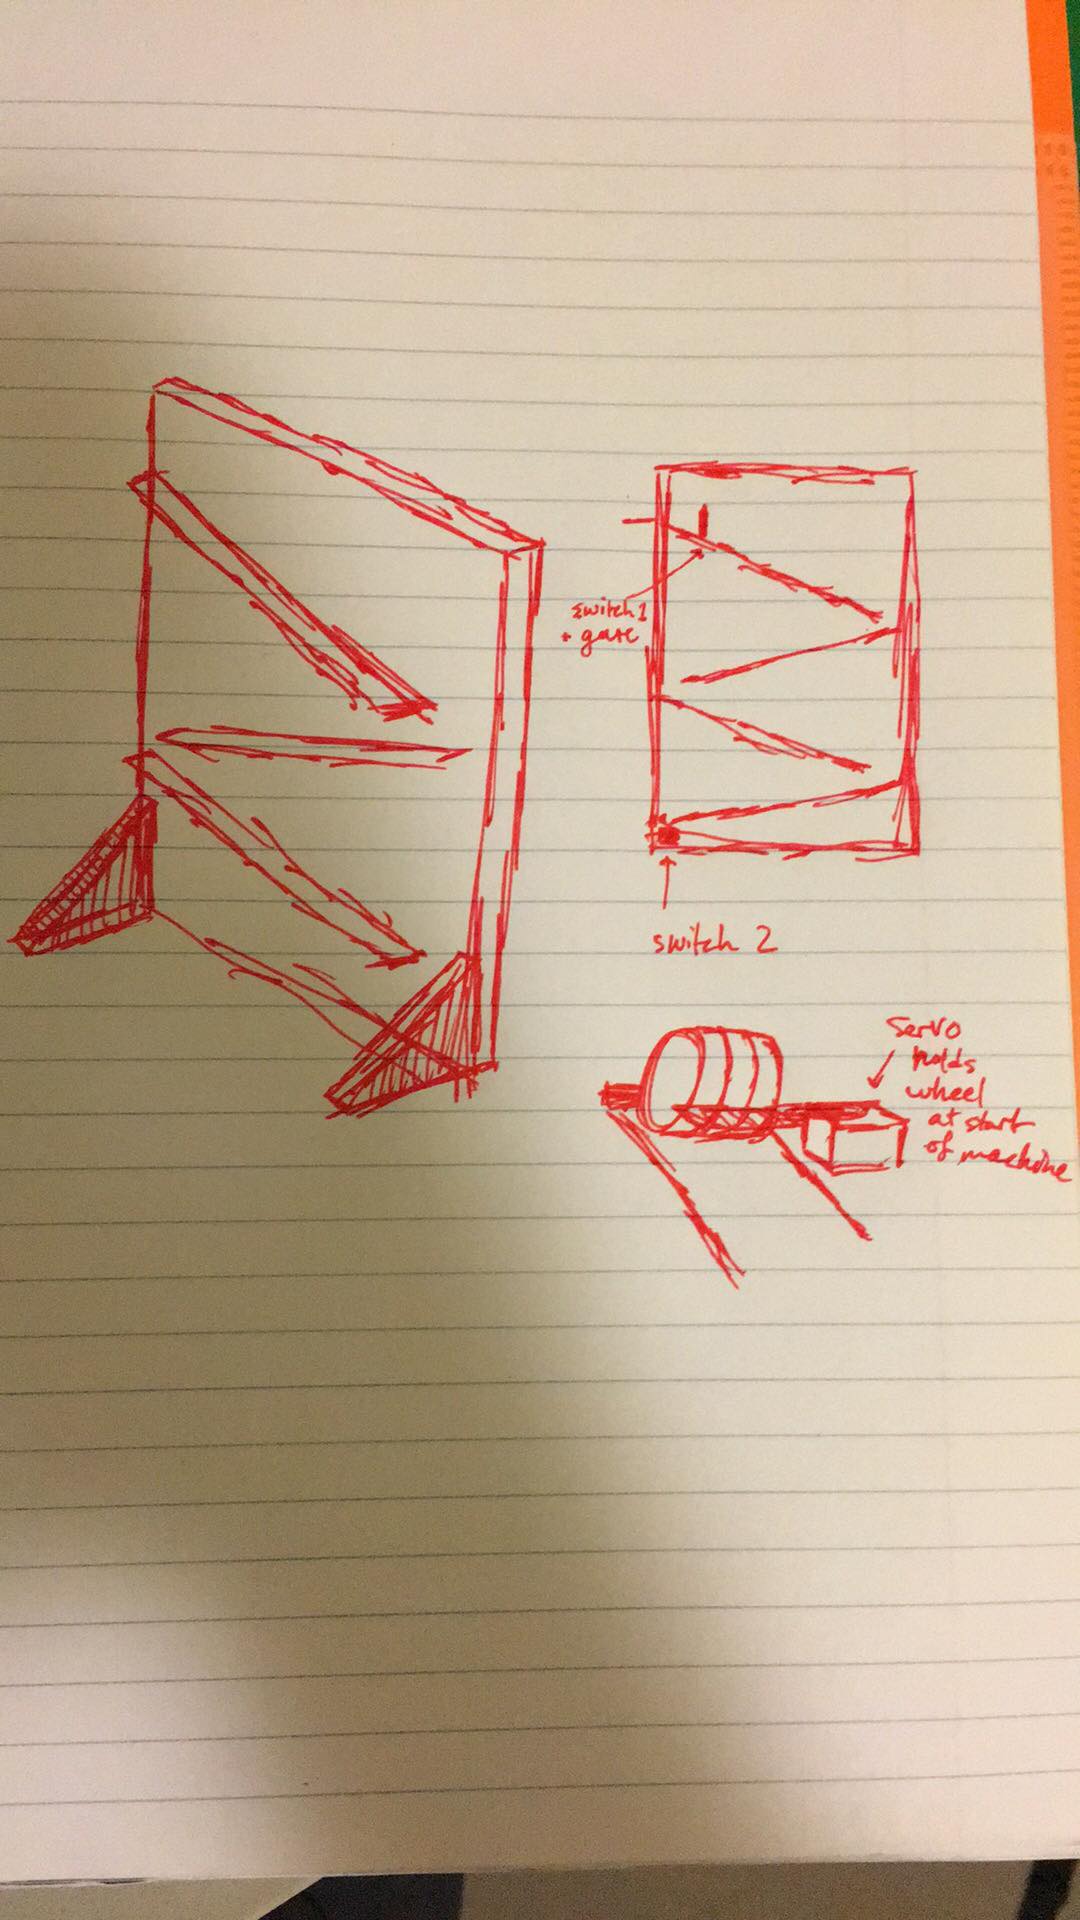 switch 1
+ gate
switch 2
Servo
holds
wheel
at start
of machine